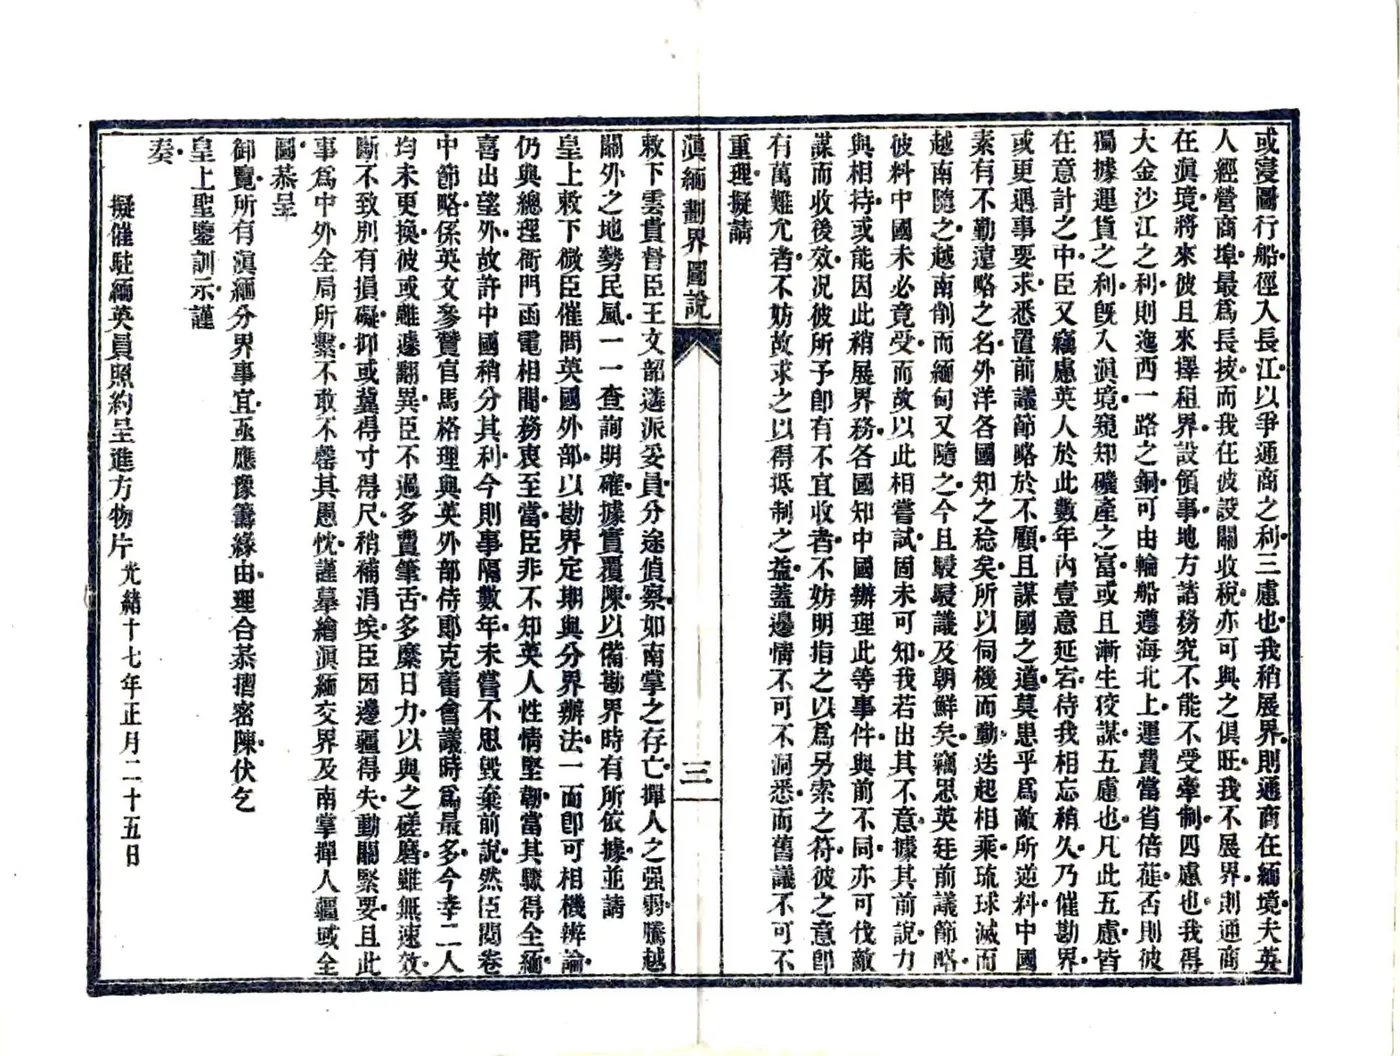 或寖圖行船徑入長江以爭通商之利三慮也我稍展界則通商在緬境夫英
人經營商埠最爲長技而我在彼設關收稅亦可與之俱旺我不展界則通商
在滇境將來彼且來擇租界設領事地方諸務究不能不受牽制四慮也我得
大金沙江之利則迤西一路之銅可由輪船遵海北上運費當省倍蓰否則彼
獨據運貨之利旣入滇境窺知礦產之富或且漸生狡謀五慮也凡此五慮皆
在意計之中臣又竊慮英人於此數年內壹意延宕待我相忘稍久乃催勘界
或更遇事要求悉置前議節略於不顧且謀國之道莫患乎爲敵所逆料中國
素有不勤遠略之名外洋各國知之稔矣所以伺機而動迭起相乘琉球滅而
越南隨之越南削而緬甸又隨之今且駸駸議及朝鮮矣竊思英廷前議節略
彼料中國未必竟受而故以此相嘗試固未可知我若出其不意據其前說力
與相持或能因此稍展界務各國知中國辦理此等事件與前不同亦可伐敵
謀而收後效況彼所予卽有不宜收者不妨明指之以爲另索之符彼之意卽
有萬難允者不妨故求之以得抵制之益蓋邊情不可不洞悉而舊議不可不
重理擬請
滇緬劃界圖說
三
敕下雲貴督臣王文韶遴派妥員分途偵察如南掌之存亡撣人之强弱騰越
關外之地勢民風一一查詢明確據實覆陳以備勘界時有所依據並請
皇上敕下微臣催問英國外部以勘界定期與分界辦法一面卽可相機辨論
仍與總理衙門函電相閱務衷至當臣非不知英人性情堅韌當其驟得全緬
喜出望外故許中國稍分其利今則事隔數年未嘗不思毀棄前說然臣閱卷
中節略係英文參贊官馬格理與英外部侍郎克蕾會議時爲最多今幸二人
均未更換彼或雖遽翻異臣不過多費筆舌多縻日力以與之磋磨雖無速效
斷不致別有損礙抑或冀得寸得尺稍補涓埃臣因邊疆得失動關緊要且此
事爲中外全局所繫不敢不罄其愚忱謹摹繪滇緬交界及南掌撣人疆域全
圖恭呈
御覽所有滇緬分界事宜亟應豫籌緣由理合恭摺密陳伏乞
皇上聖鑒訓示謹
奏
擬催駐緬英員照約呈進方物片光緒十七年正月二十五日